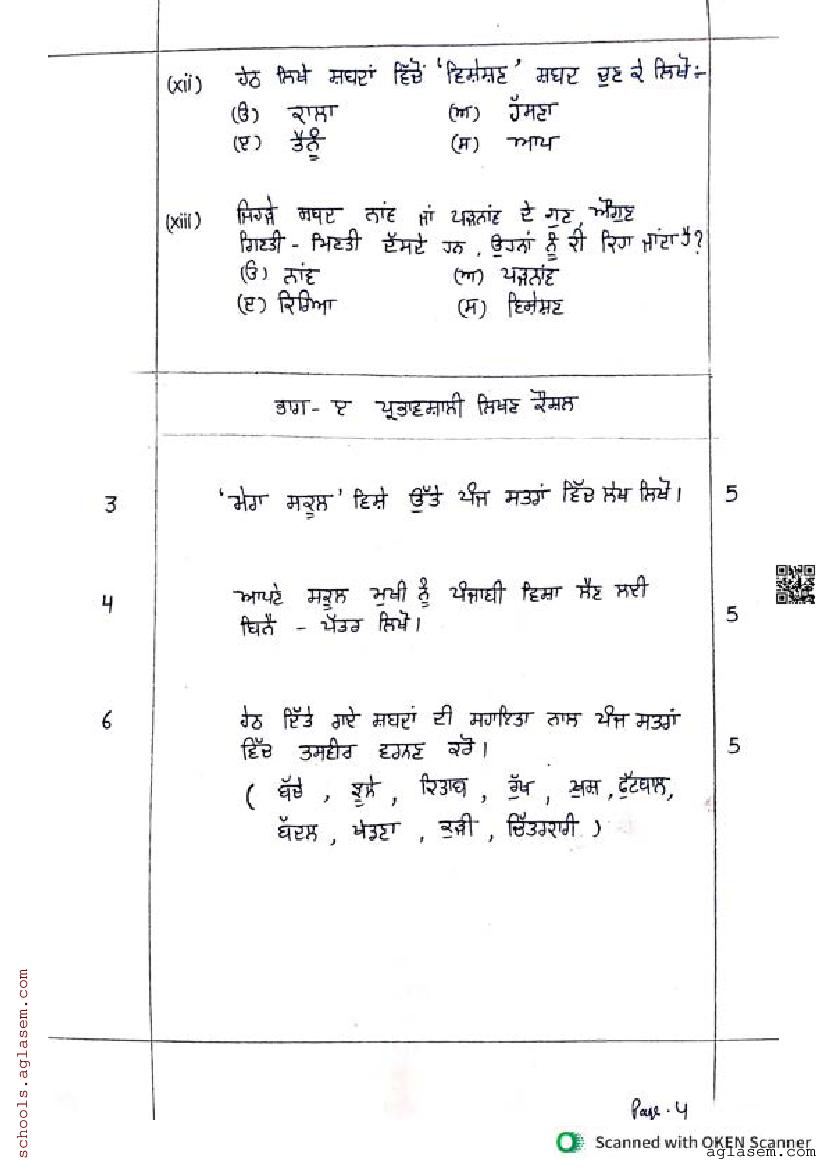 (xii) ਹੇਠ ਲਿਖੇ ਸ਼ਬਦਾਂ ਵਿੱਚੋਂ 'ਵਿਸ਼ੇਸ਼ਣ' ਸ਼ਬਦ ਚੁਣ ਕੇ ਲਿਖੋ:-
(ੳ) ਕਾਲਾ (ਅ) ਹੱਸਣਾ
(ੲ) ਤੈਨੂੰ (ਸ) ਆਪ
(xiii) ਜਿਹੜੇ ਸ਼ਬਦ ਨਾਂਵ ਜਾਂ ਪੜਨਾਂਵ ਦੇ ਗੁਣ, ਔਗੁਣ
ਗਿਣਤੀ - ਮਿਣਤੀ ਦੱਸਦੇ ਹਨ, ਉਹਨਾਂ ਨੂੰ ਕੀ ਕਿਹਾ ਜਾਂਦਾ ਹੈ?
(ੳ) ਨਾਂਵ (ਅ) ਪੜਨਾਂਵ
(ੲ) ਕਿਰਿਆ (ਸ) ਵਿਸ਼ੇਸ਼ਣ
ਭਾਗ - ੲ ਪ੍ਰਭਾਵਸ਼ਾਲੀ ਲਿਖਣ ਕੌਸ਼ਲ
3 'ਮੇਰਾ ਸਕੂਲ' ਵਿਸ਼ੇ ਉੱਤੇ ਪੰਜ ਸਤਰਾਂ ਵਿੱਚ ਲੇਖ ਲਿਖੋ। 5
4 ਆਪਣੇ ਸਕੂਲ ਮੁਖੀ ਨੂੰ ਪੰਜਾਬੀ ਵਿਸ਼ਾ ਲੈਣ ਲਈ
ਬਿਨੈ - ਪੱਤਰ ਲਿਖੋ। 5
6 ਹੇਠ ਦਿੱਤੇ ਗਏ ਸ਼ਬਦਾਂ ਦੀ ਸਹਾਇਤਾ ਨਾਲ ਪੰਜ ਸਤਰਾਂ
ਵਿੱਚ ਤਸਵੀਰ ਵਰਨਣ ਕਰੋ। 5
( ਬੱਚੇ, ਝੂਲੇ, ਕਿਤਾਬ, ਰੁੱਖ, ਖੁਸ਼, ਫੁੱਟਬਾਲ,
ਬੱਦਲ, ਖੇਡਣਾ, ਕੁੜੀ, ਚਿੱਤਰਕਾਰੀ )
Page - 4
Scanned with OKEN Scanner
aglasem.com
schools.aglasem.com